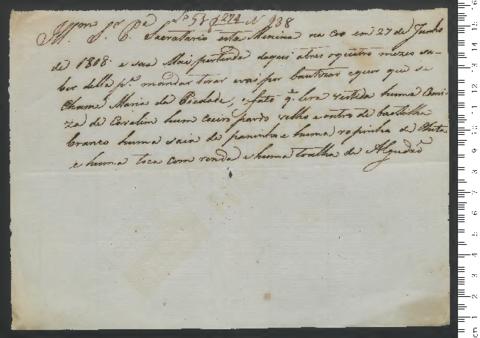 Illmo Sr. Pe Secretario esta Menina na ceo em 27 de Junho
de 1818 e sua Mai pertende daqui atres oquatro mezes sa-
ber della pa mandar tirar evai por bautizar equer que se
Chame Maria da Piedade, efato q leva vestida huma Cami-
za de Cavalim hum coeiro pardo velho e outro de baetilha
branco huma saia de paninho e huma roupinha de Chita
e huma toca com renda e huma toalha de Algudão